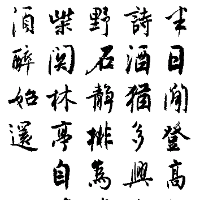 半日閒登高
詩酒猶多興
野石静排為
柴関林亭自
酒醉始還